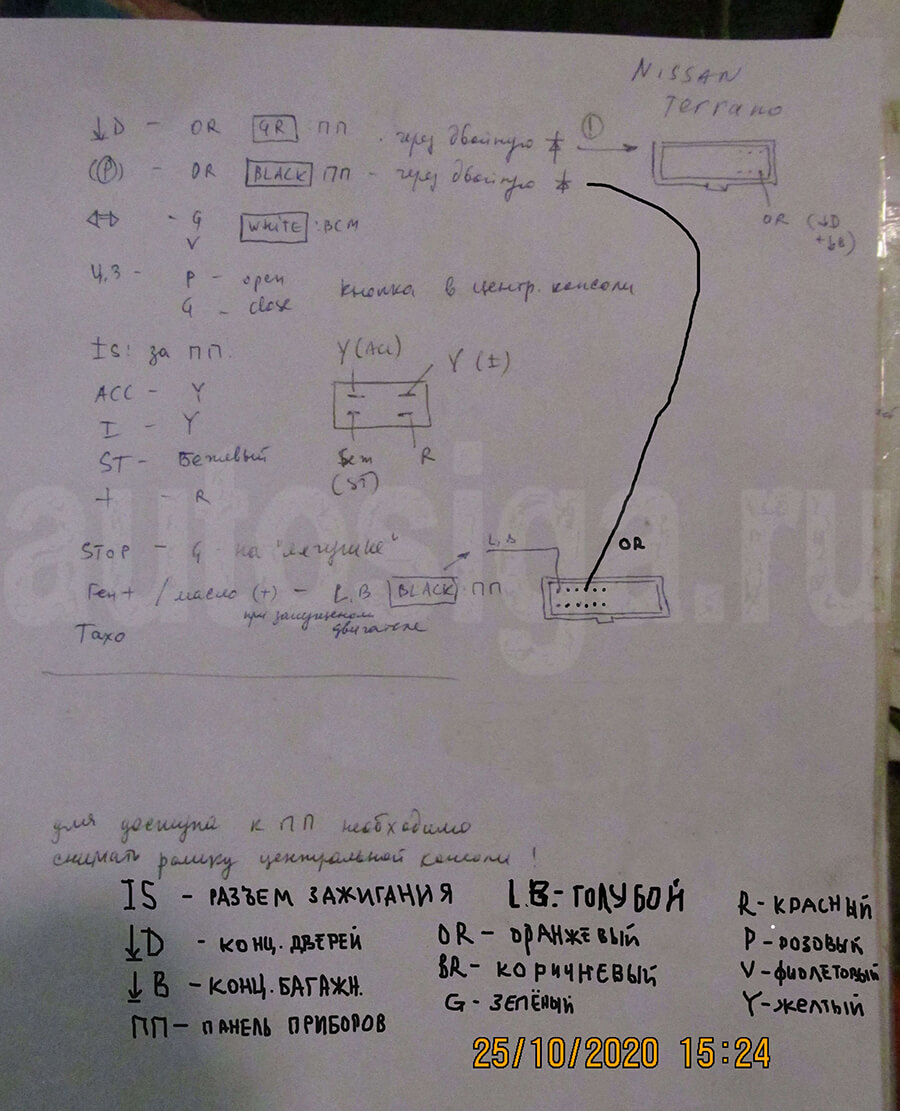 NISSAN
Terrano
↓D - OR GR : ПП . через двойную ①
(P) - OR BLACK ПП - через двойную
OR (↓D
+↓B)
⇔ - G WHITE : BCM
V
Ц.З - P - open кнопка в центр. консоли
G - close
IS: за ПП.
Y (ACC) Y (I)
ACC - Y
I - Y
ST - Бежевый
Беж R
(ST)
+ - R
STOP - G - на "лягушке"
L,B OR
Ген + / масло (+) - L.B BLACK : ПП
при запущенном двигателе
Тахо
autosiga.ru
для доступа к ПП необходимо
снимать рамку центральной консоли !
IS - РАЗЪЕМ ЗАЖИГАНИЯ
↓D - КОНЦ. ДВЕРЕЙ
↓B - КОНЦ. БАГАЖН.
ПП - ПАНЕЛЬ ПРИБОРОВ
L.B. - ГОЛУБОЙ
OR - ОРАНЖЕВЫЙ
BR - КОРИЧНЕВЫЙ
G - ЗЕЛЁНЫЙ
R - КРАСНЫЙ
P - РОЗОВЫЙ
V - ФИОЛЕТОВЫЙ
Y - ЖЕЛТЫЙ
25/10/2020 15:24